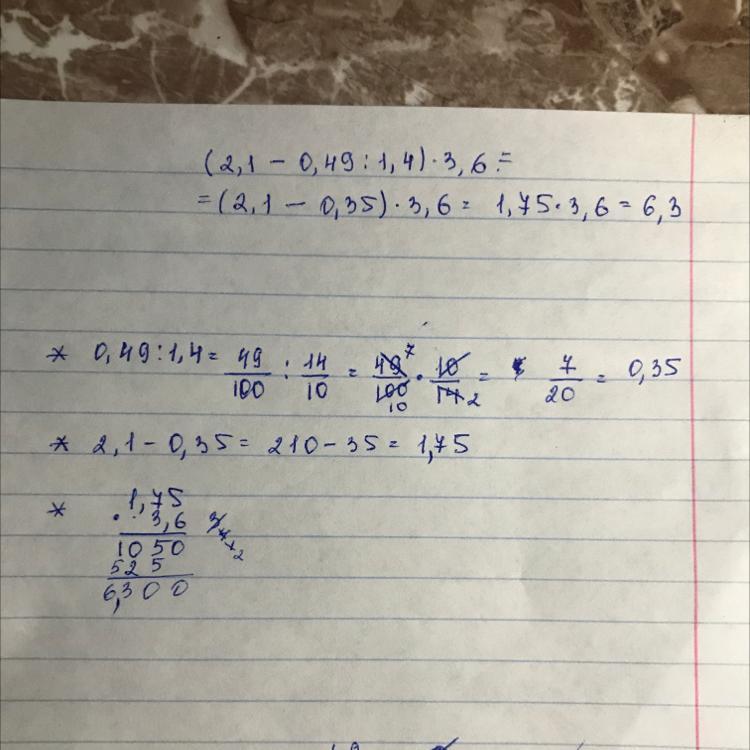 (2,1 - 0,49 : 1,4) · 3,6 =
= (2,1 - 0,35) · 3,6 = 1,75 · 3,6 = 6,3
* 0,49 : 1,4 = 49/100 : 14/10 = 49 7/100 10 · 10/14 2 = 7/20 = 0,35
* 2,1 - 0,35 = 210 - 35 = 1,75
* 1,75
· 3,6
1050
525
6,300